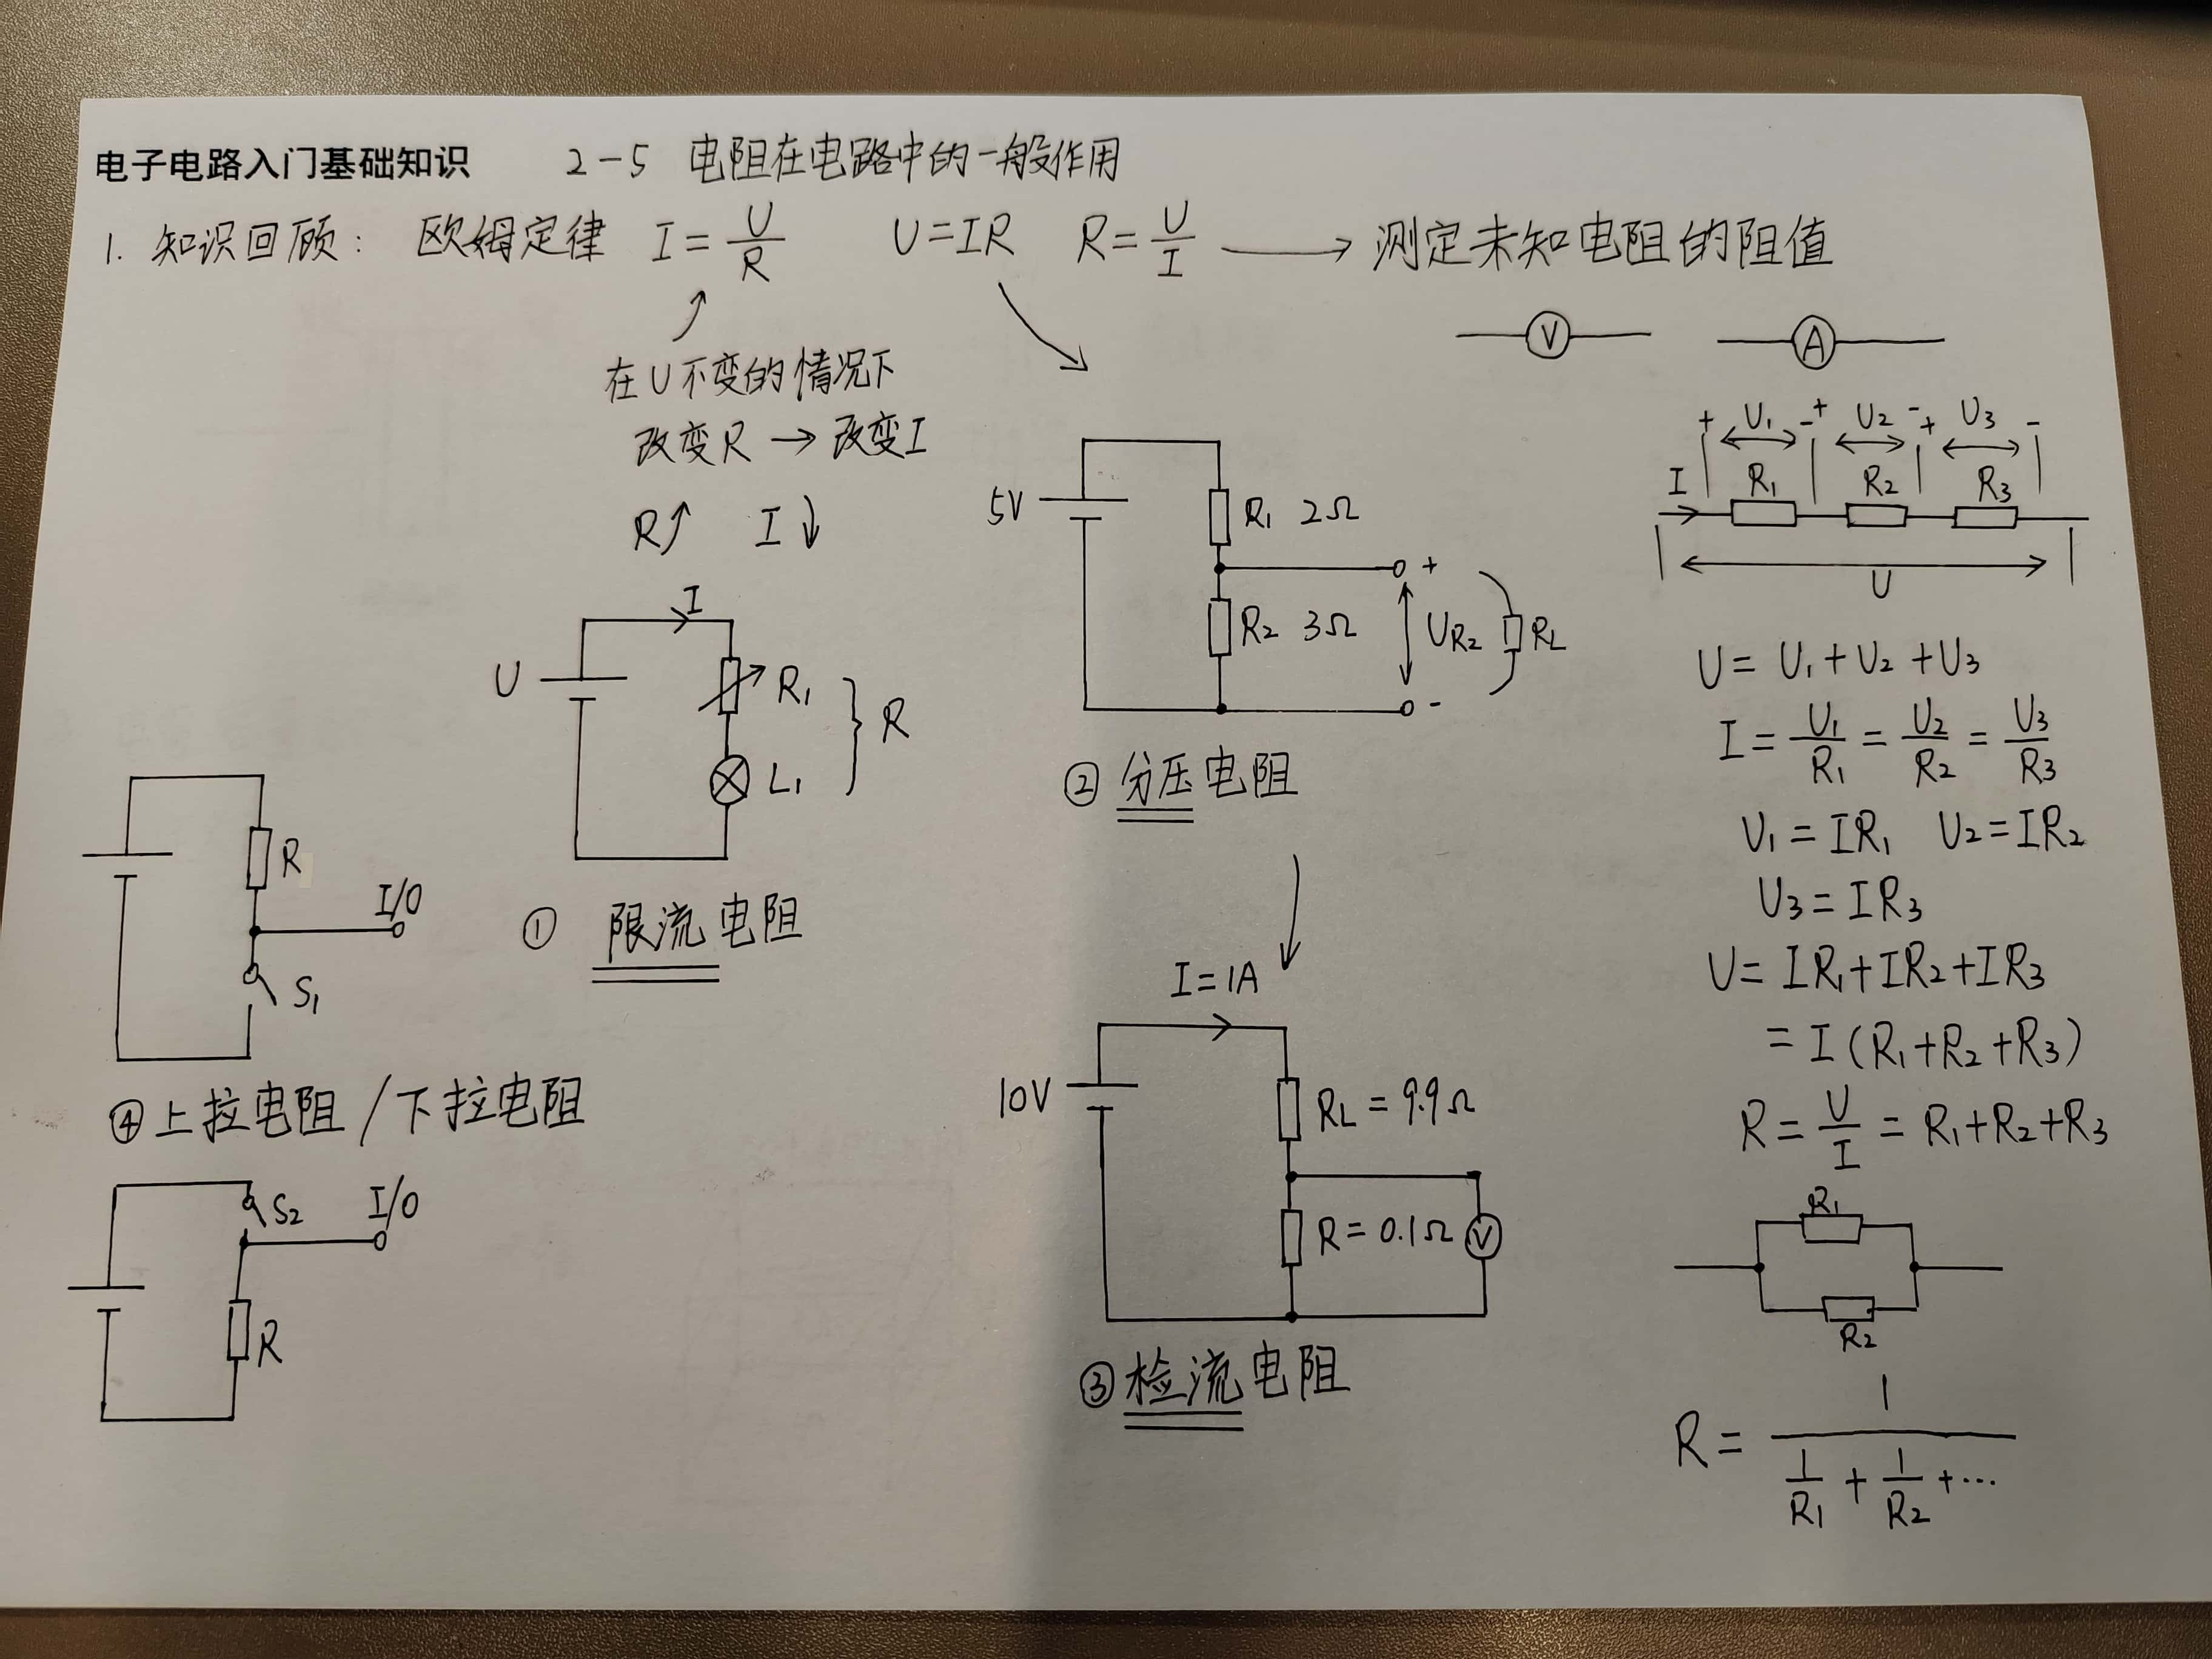 电子电路入门基础知识 2-5 电阻在电路中的一般作用
1. 知识回顾: 欧姆定律 I = U/R U=IR R= U/I → 测定未知电阻的阻值
在U不变的情况下
改变R → 改变I
R↑ I↓
I
U
R₁
L₁
} R
① 限流电阻
5V
R₁ 2Ω
R₂ 3Ω
+
U_R₂
-
R_L
② 分压电阻
I=1A
10V
R_L = 9.9Ω
R= 0.1Ω
V
③ 检流电阻
R
I/O
S₁
④ 上拉电阻 / 下拉电阻
S₂
I/O
R
V A
+ U₁ - + U₂ - + U₃ -
I R₁ R₂ R₃
U
U = U₁ + U₂ + U₃
I = U₁/R₁ = U₂/R₂ = U₃/R₃
U₁ = IR₁ U₂ = IR₂
U₃ = IR₃
U = IR₁+IR₂+IR₃
= I (R₁+R₂+R₃)
R = U/I = R₁+R₂+R₃
R₁
R₂
R = 1/(1/R₁ + 1/R₂ + ...)